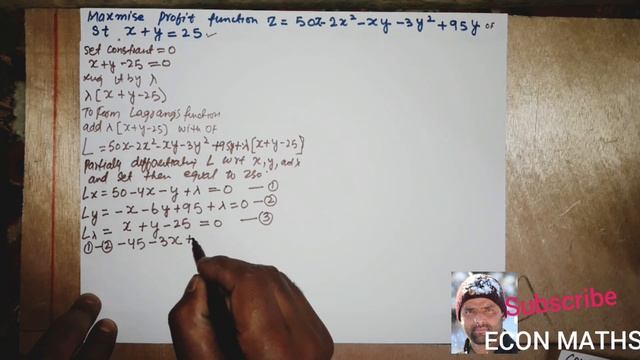 Maxmise Profit function Z = 50x - 2x² - xy - 3y² + 95y of
St x + y = 25
set constraint = 0
x + y - 25 = 0
by λ
λ[x + y - 25)
To form Lagrang's function
add λ[x+y-25) with of
L = 50x - 2x² - xy - 3y² + 95y + λ[x + y - 25]
Partially differentiating L wrt x, y, and λ
and set then equal to zero.
Lx = 50 - 4x - y + λ = 0 — ①
Ly = -x - 6y + 95 + λ = 0 — ②
Lλ = x + y - 25 = 0 — ③
① - ② - 45 - 3x +
Subscribe
ECON MATHS